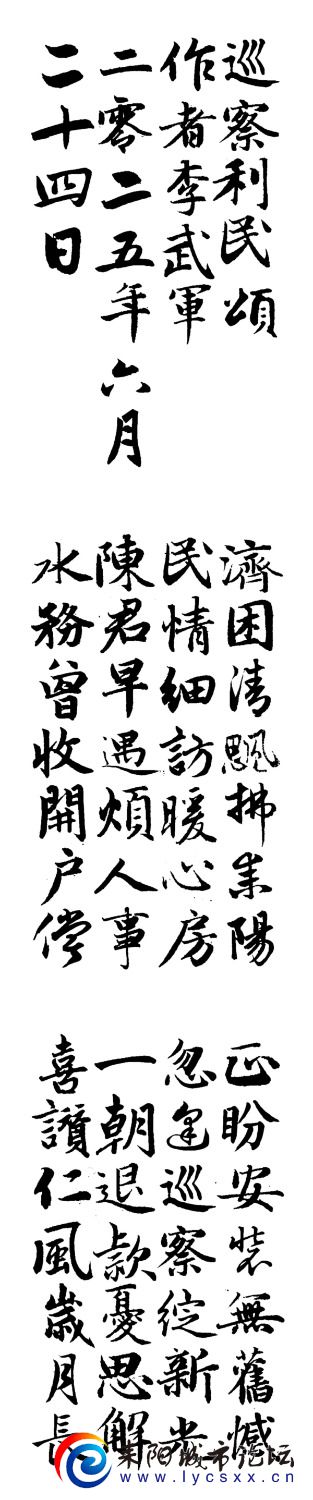 巡察利民頌
作者李武軍
二零二五年六月
二十四日
濟困清飄拂耒陽
民情細訪暖心房
陳君早遇煩人事
水務曾收開户償
正盼安裝無舊憾
忽逢巡察綻新光
一朝退款憂思解
喜讚仁風歲月長
耒阳城市论坛
www.lycsxx.cn